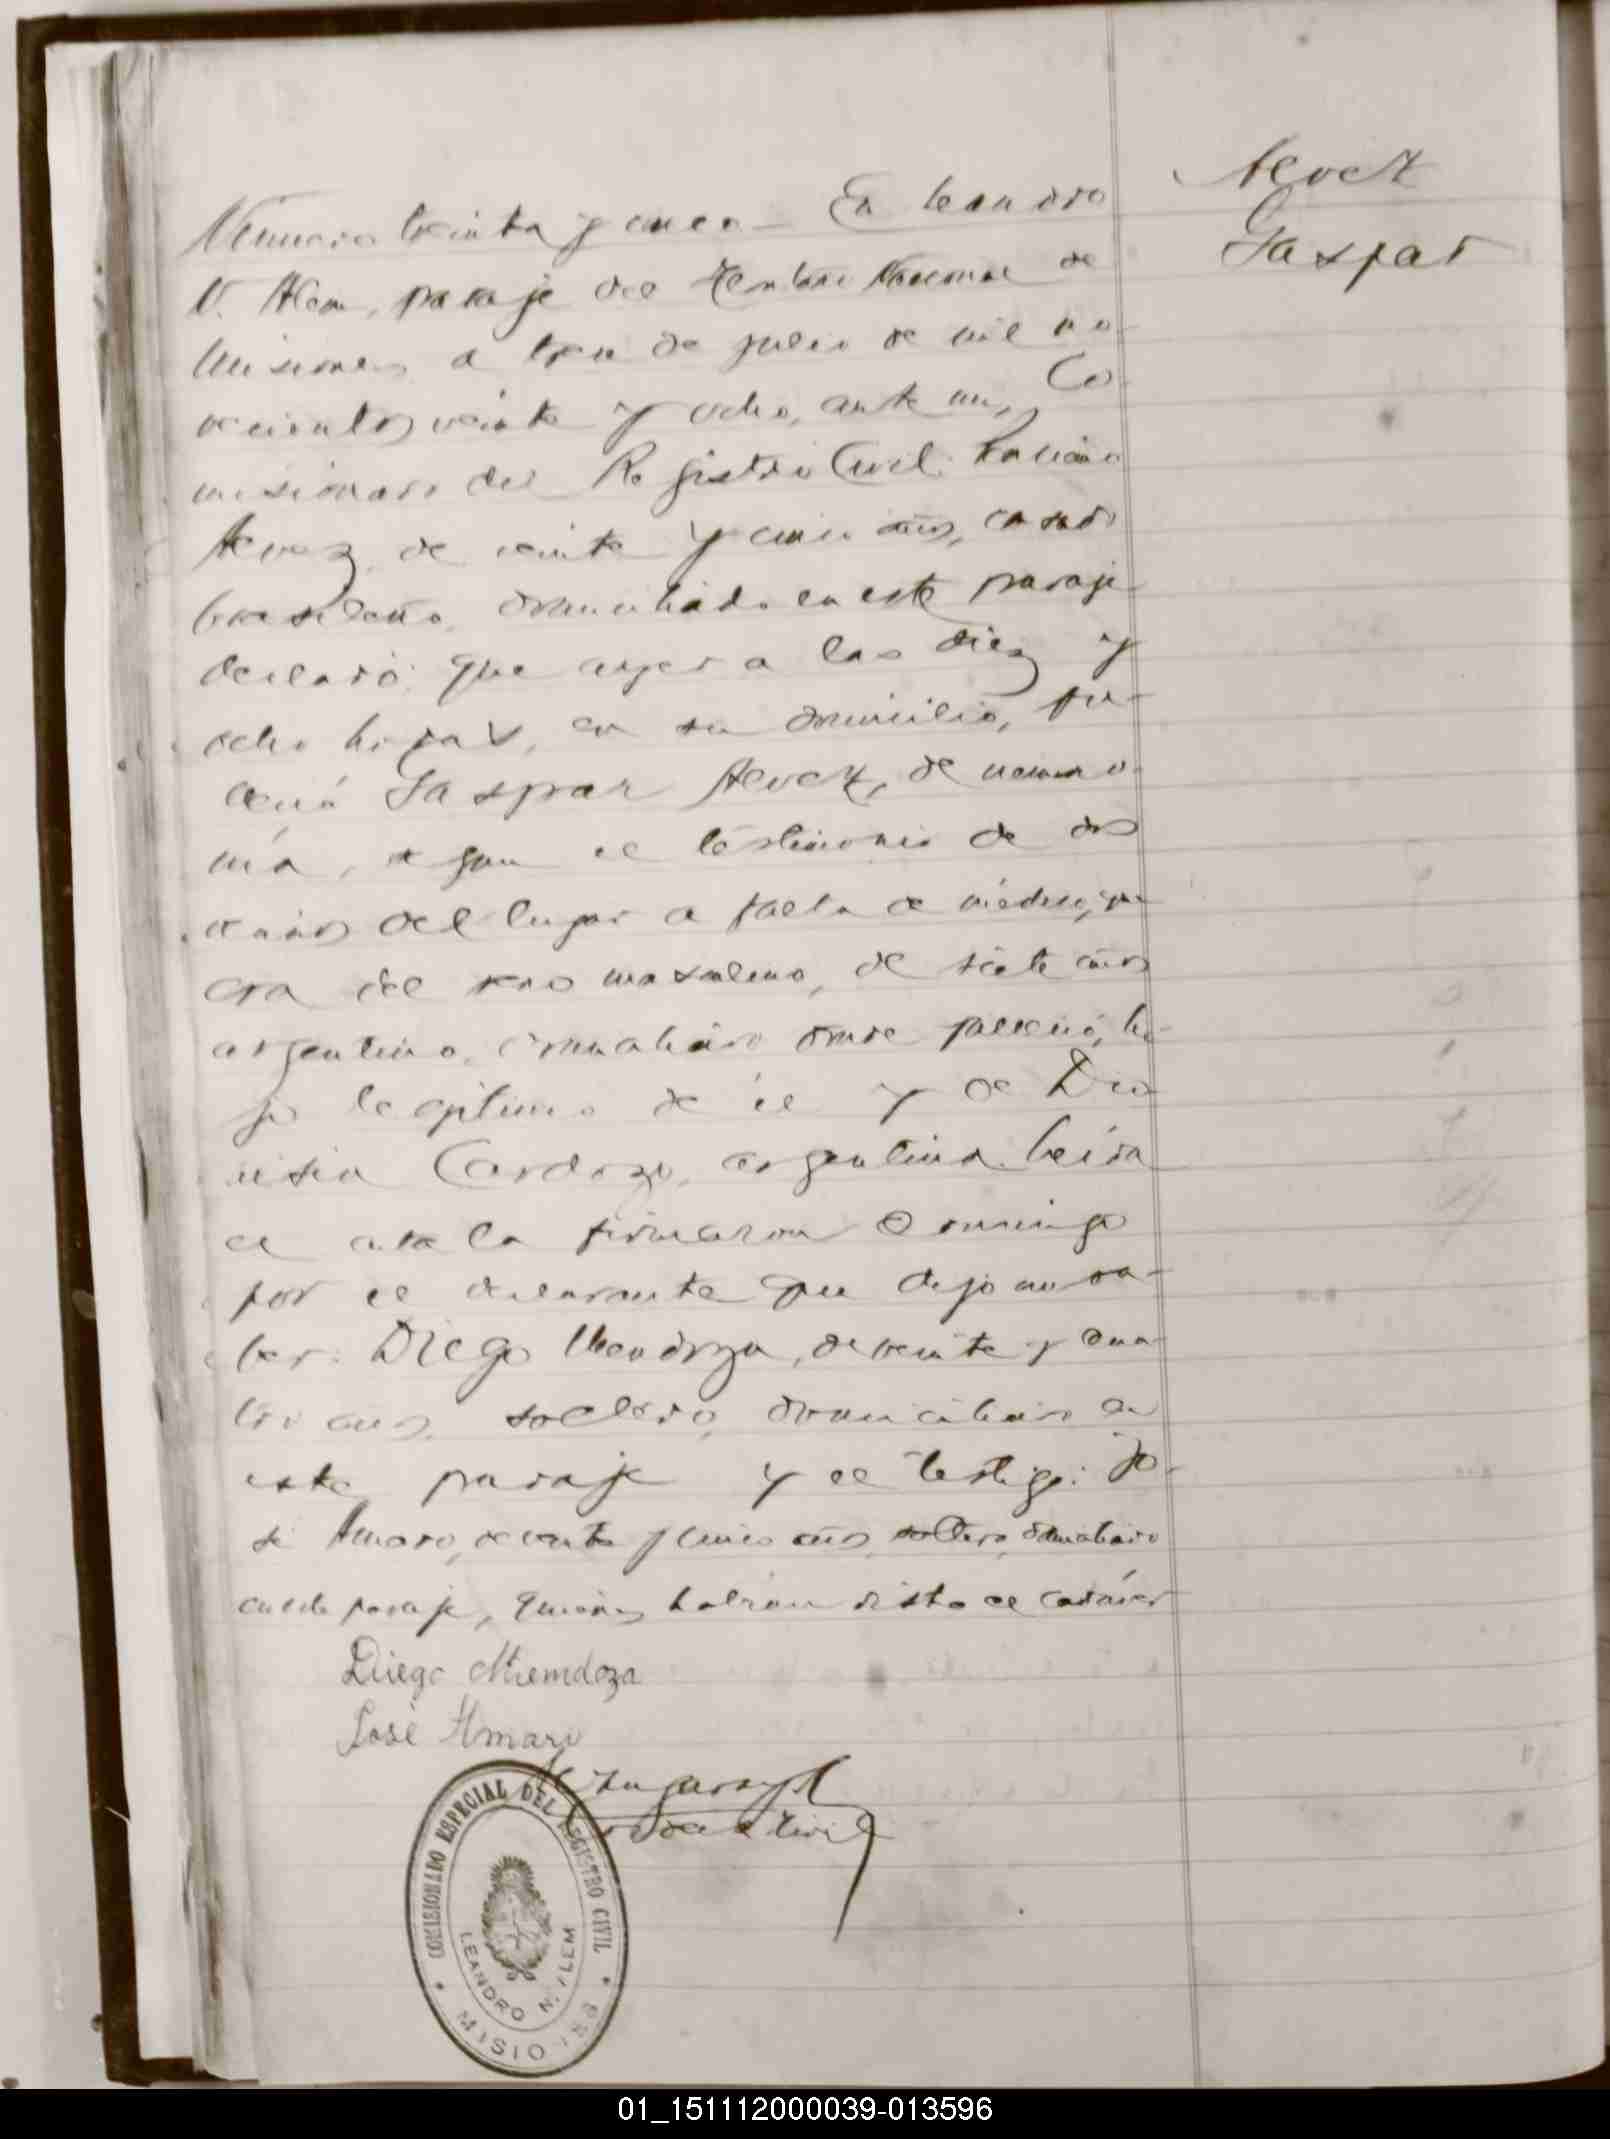 Alvez
Gaspar
Número treinta y cinco - En Leandro
N. Alem, paraje del Territorio Nacional de
Misiones, a tres de julio de mil no-
vecientos veinte y ocho, ante mi, Co-
misionado del Registro Civil:
Alvez, de veinte y cinco años, casado
brasileño, domiciliado en este paraje
declaró: que ayer a las diez y
ocho horas, en su domicilio, fa-
lleció Gaspar Alvez, de neumo-
nía, segun el testimonio de dos
vecinos del lugar a falta de médico, que
era del sexo masculino, de siete años
argentino, domiciliado donde falleció, hi-
jo legitimo de él y de Dio
nisia Cardozo, argentina. Leída
el acta la firmaron
por el declarante que dijo no sa-
ber: Diego Mendoza, de veinte y cua-
tro años, soltero, domiciliado en
este paraje y el testigo: Jo-
sé Amaro, de veinte y cinco años, soltero, domiciliado
en este paraje, quienes habian visto el cadáver
Diego Miemdoza
José Amaro
COMISIONADO ESPECIAL DEL REGISTRO CIVIL
LEANDRO N. ALEM
MISIONES
01_151112000039-013596